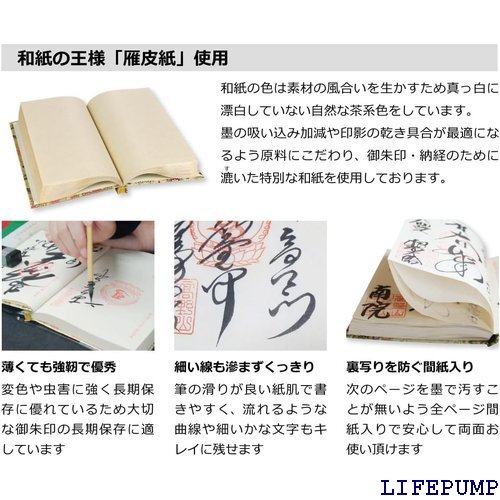 和紙の王様「雁皮紙」使用
和紙の色は素材の風合いを生かすため真っ白に
漂白していない自然な茶系色をしています。
墨の吸い込み加減や印影の乾き具合が最適にな
るよう原料にこだわり、御朱印・納経のために
漉いた特別な和紙を使用しております。
す
薄くても強靭で優秀
変色や虫害に強く長期保
存に優れているため大切
な御朱印の長期保存に適
しています
細い線も滲まずくっきり
筆の滑りが良い紙肌で書
きやすく、流れるような
曲線や細いかな文字もキ
レイに残せます
南院
裏写りを防ぐ間紙入り
次のページを墨で汚すこ
とが無いよう全ページ間
紙入りで安心して両面お
使い頂けます
LIFEPUMP